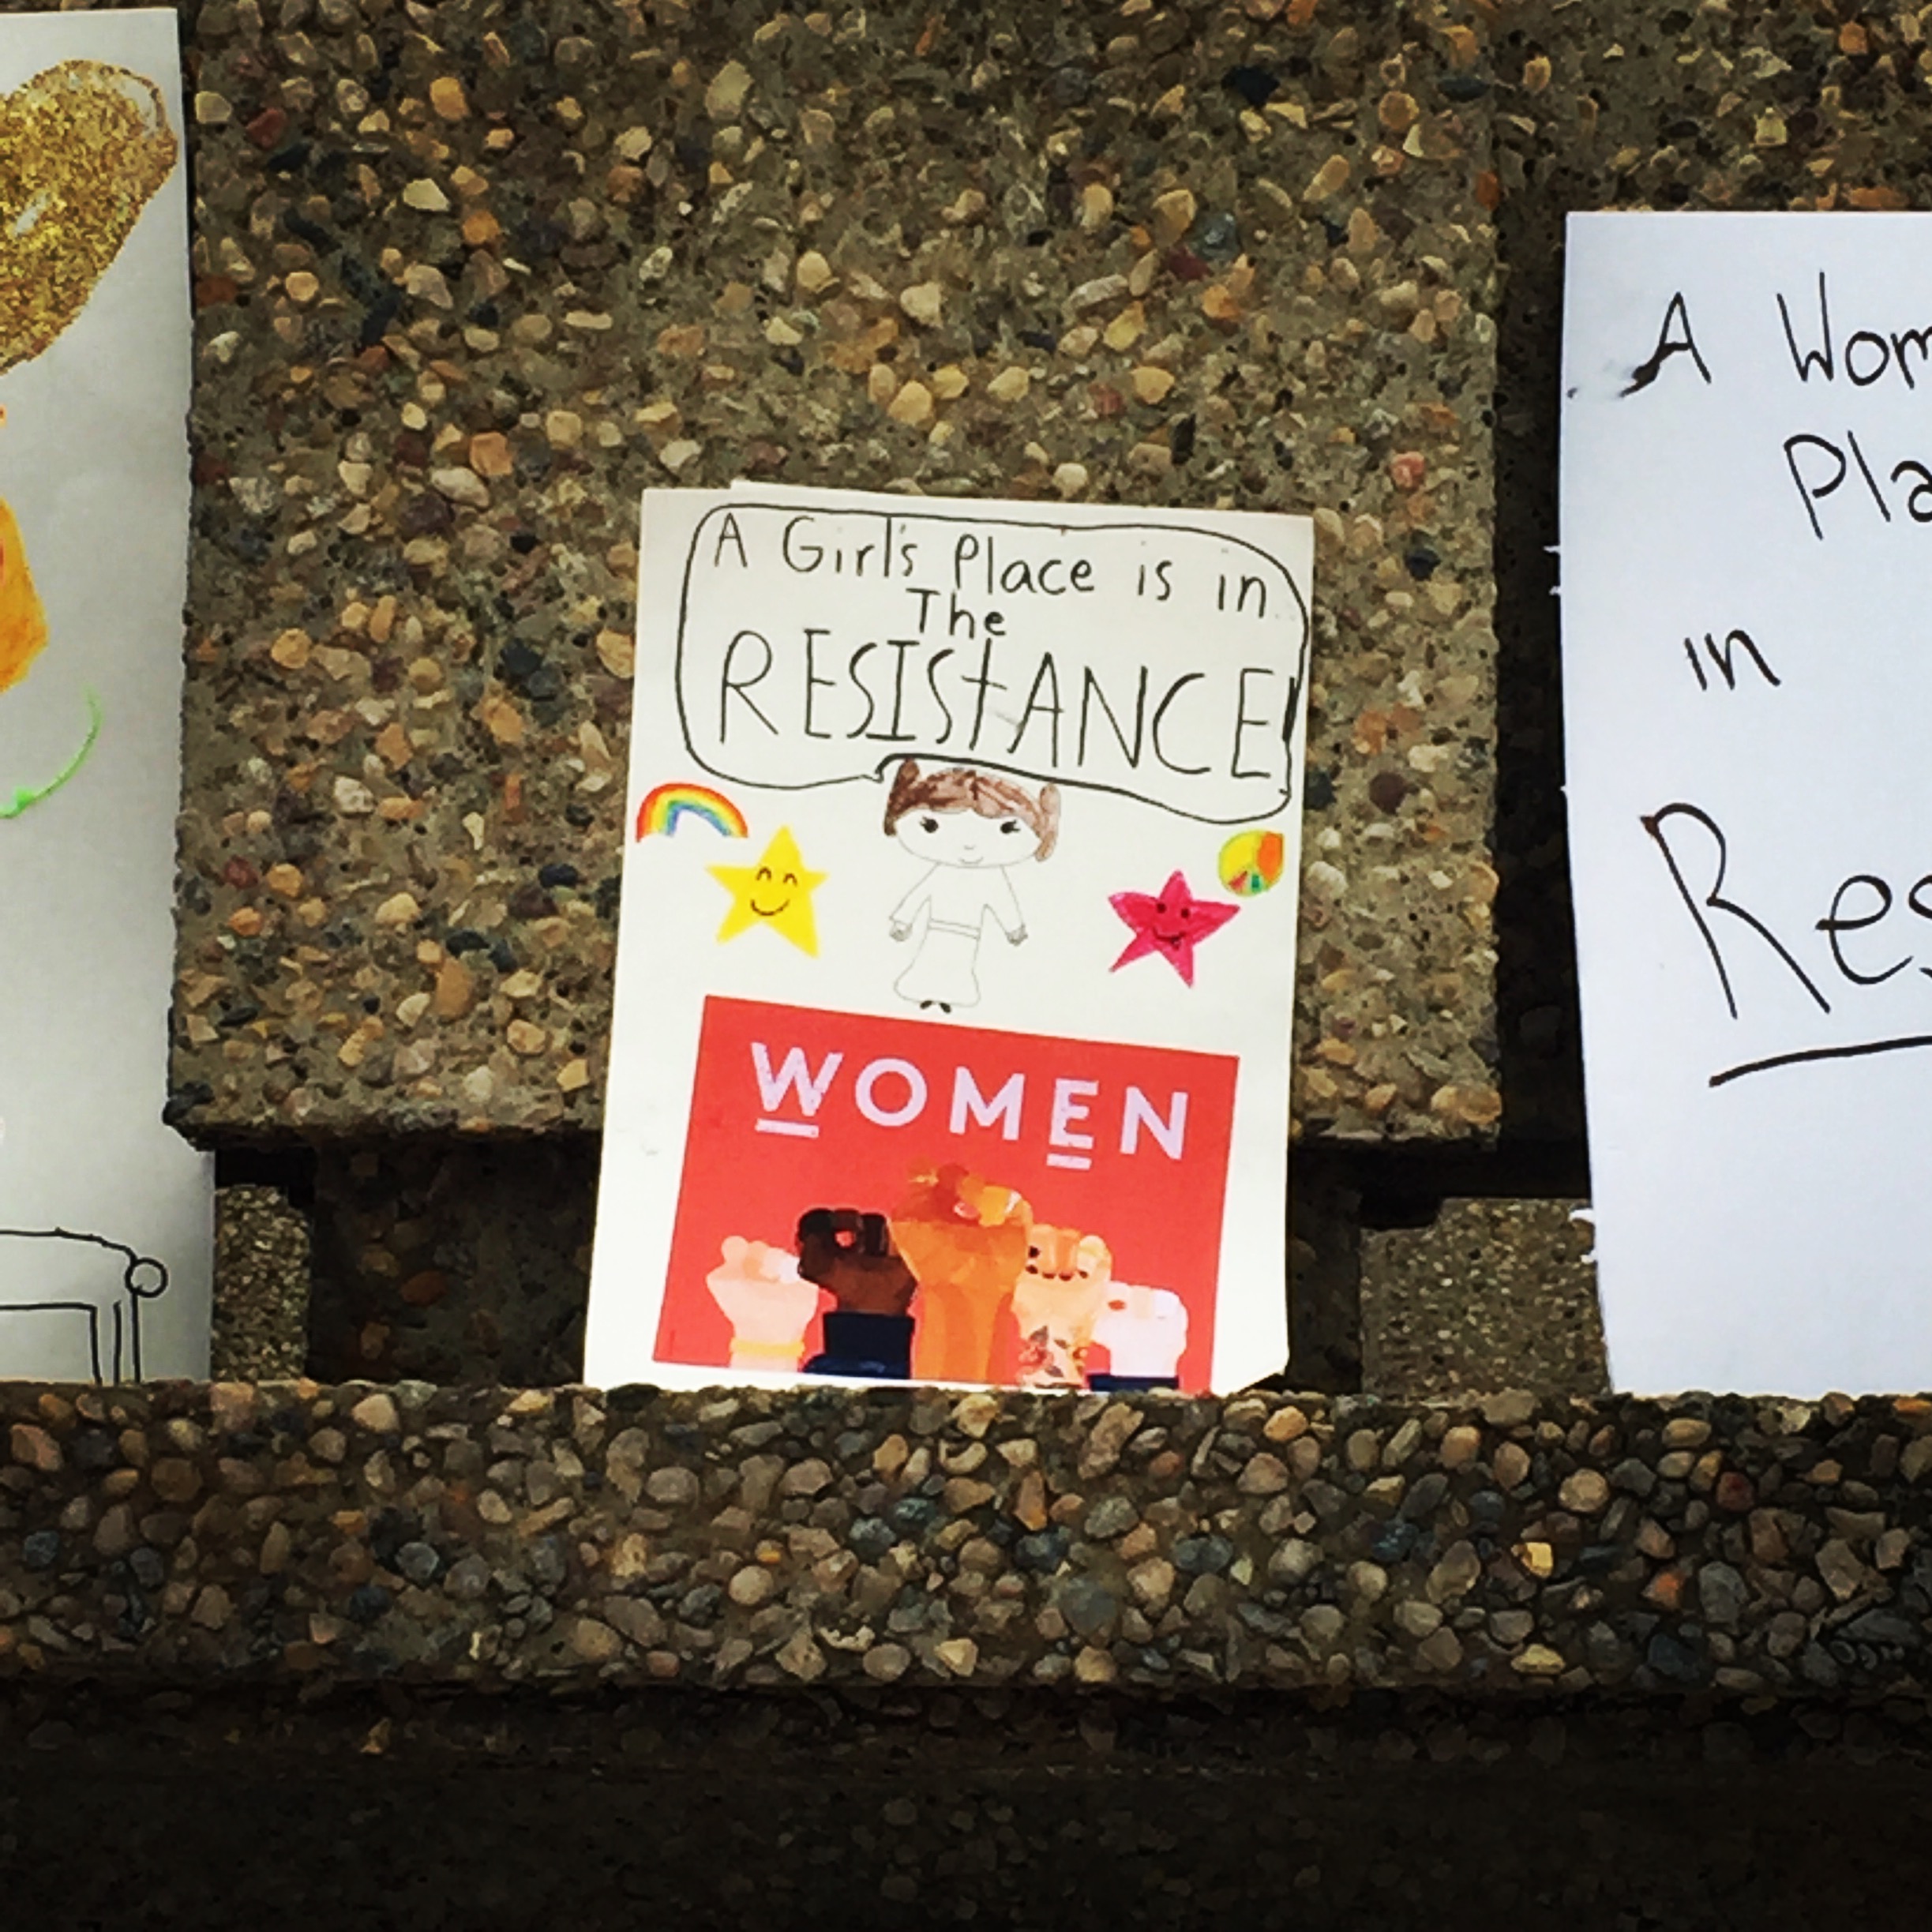 A Girl's Place is in
The
RESIStANCE!
WOMEN
A
in